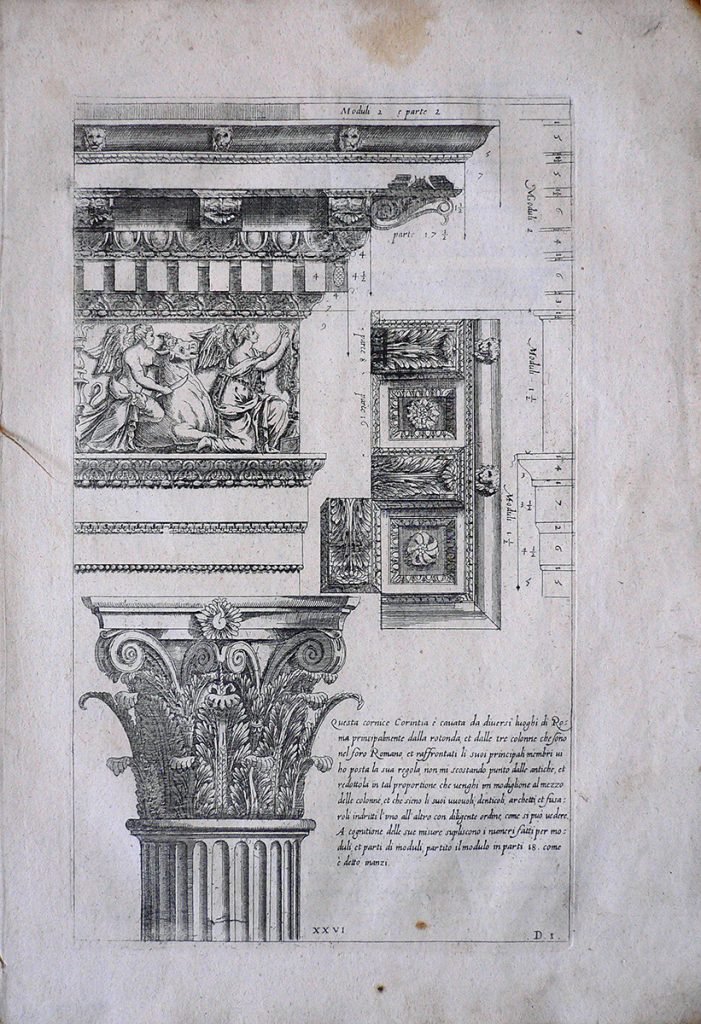 Moduli 2 e parte 2
5
6
5
7
Moduli 2
6
1 1/2
parte 17 1/2
4
4
4 1/2
4
6
3
7
9
parte 8
Moduli 1 1/2
parte 16
4
1
7
Moduli 1 1/2
2
6
5
Questa cornice Corintia è cavata da diversi luoghi di Ro=
ma principalmente dalla rotonda, et dalle tre colonne che sono
nel foro Romano, et raffrontati li suoi principali membri vi
ho posta la sua regola non mi scostando punto dalle antiche, et
redottola in tal proportione che venghi un modiglione al mezzo
delle colonne, et che sieno li suoi vuovoli, denticoli, archetti et fusa=
roli indritti l'uno all'altro con diligente ordine, come si può vedere.
A cognitione delle sue misure supliscono i numeri fatti per mo=
duli, et parti di moduli, partito il modulo in parti 18. come
è detto inanzi.
XXVI
D. 1.